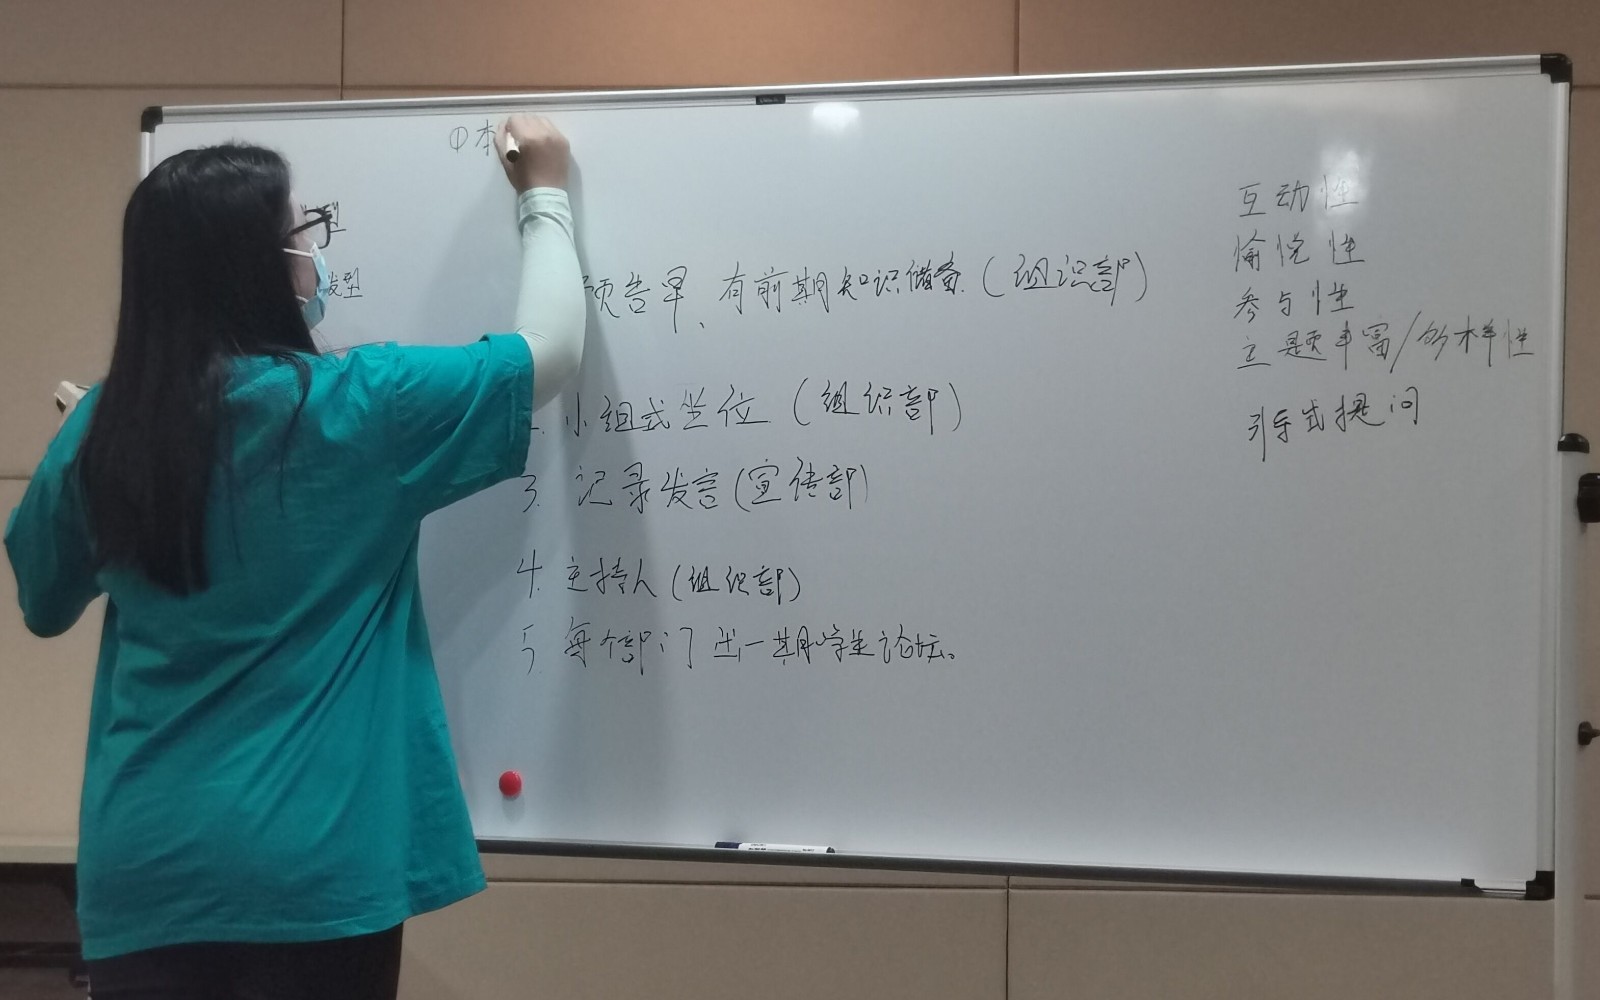 ①本
型
发型
预告早、有前期知识储备.(组识部)
2. 小组式坐位.(组织部)
3. 记录发言(宣传部)
4. 主持人(组织部)
5. 每个部门出一期学生论坛。
互动性
愉悦性
参与性
主题丰富/多样性
引导式提问